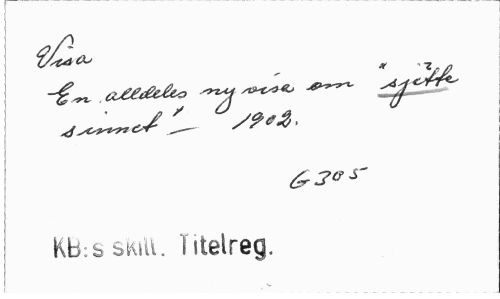 Visa
En alldeles ny visa om "sjette
sinnet" — 1902.
G 385
KB:s skill. Titelreg.